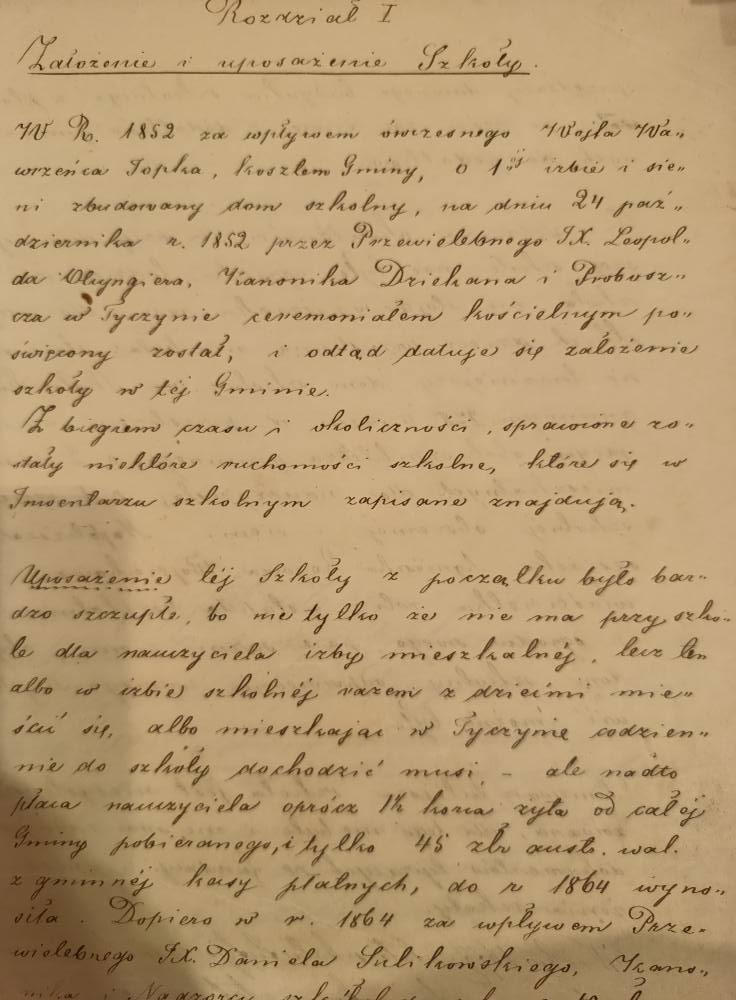 Rozdział I
Założenie i uposażenie Szkoły.
W R. 1852 za wpływem ówczesnego Wójta Wa„
wrzeńca Topka, kosztem Gminy, o 1ⁿᵉʲ izbie i sie„
ni zbudowany dom szkolny, na dniu 24 paź„
dziernika r. 1852 przez Przewielebnego JX. Leopol„
da Olcyngiera, Kanonika Dziekana i Probosz„
cza w Tyczynie ceremoniałem kościelnym po„
święcony został, i odtąd datuje się założenie
szkoły w téj Gminie.
Z biegiem czasu i okoliczności, sprawione zo„
stały niektóre ruchomości szkolne, które się w
Inwentarzu szkolnym zapisane znajdują.
Uposażenie téj Szkoły z początku było bar„
dzo szczupłe, bo nie tylko że nie ma przy szko„
le dla nauczyciela izby mieszkalnéj, lecz ten
albo w izbie szkolnéj razem z dziećmi mie„
ścić się, albo mieszkając w Tyczynie codzien„
nie do szkoły dochodzić musi, – ale nadto
płaca nauczyciela oprócz 1½ korca żyta od całéj
Gminy pobieranego, i tylko 45 złr austr. wal.
z gminnéj kasy płatnych, do r 1864 wyno„
siła. Dopiero w r. 1864 za wpływem Prze„
wielebnego JX. Daniela Sulikowskiego, Kano„
nika i Nadzorcy